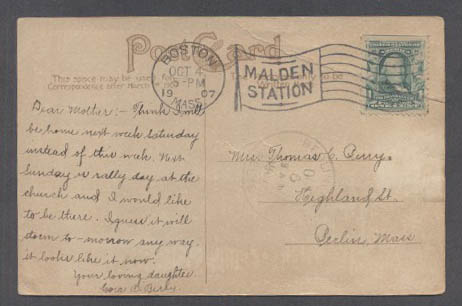 Post Card
BOSTON
OCT 4
-PM
19 07
MASS
MALDEN
STATION
This space may be used
Correspondence after March
Dear Mother:- Think I will
be home next week Saturday
instead of this week. Next
Sunday is rally day at the
church and I would like
to be there. I guess it will
storm to-morrow any way.
it looks like it now.
Your loving daughter
Cora D. Perry.
Mrs. Thomas C. Perry.
Highland St.
Berlin, Mass